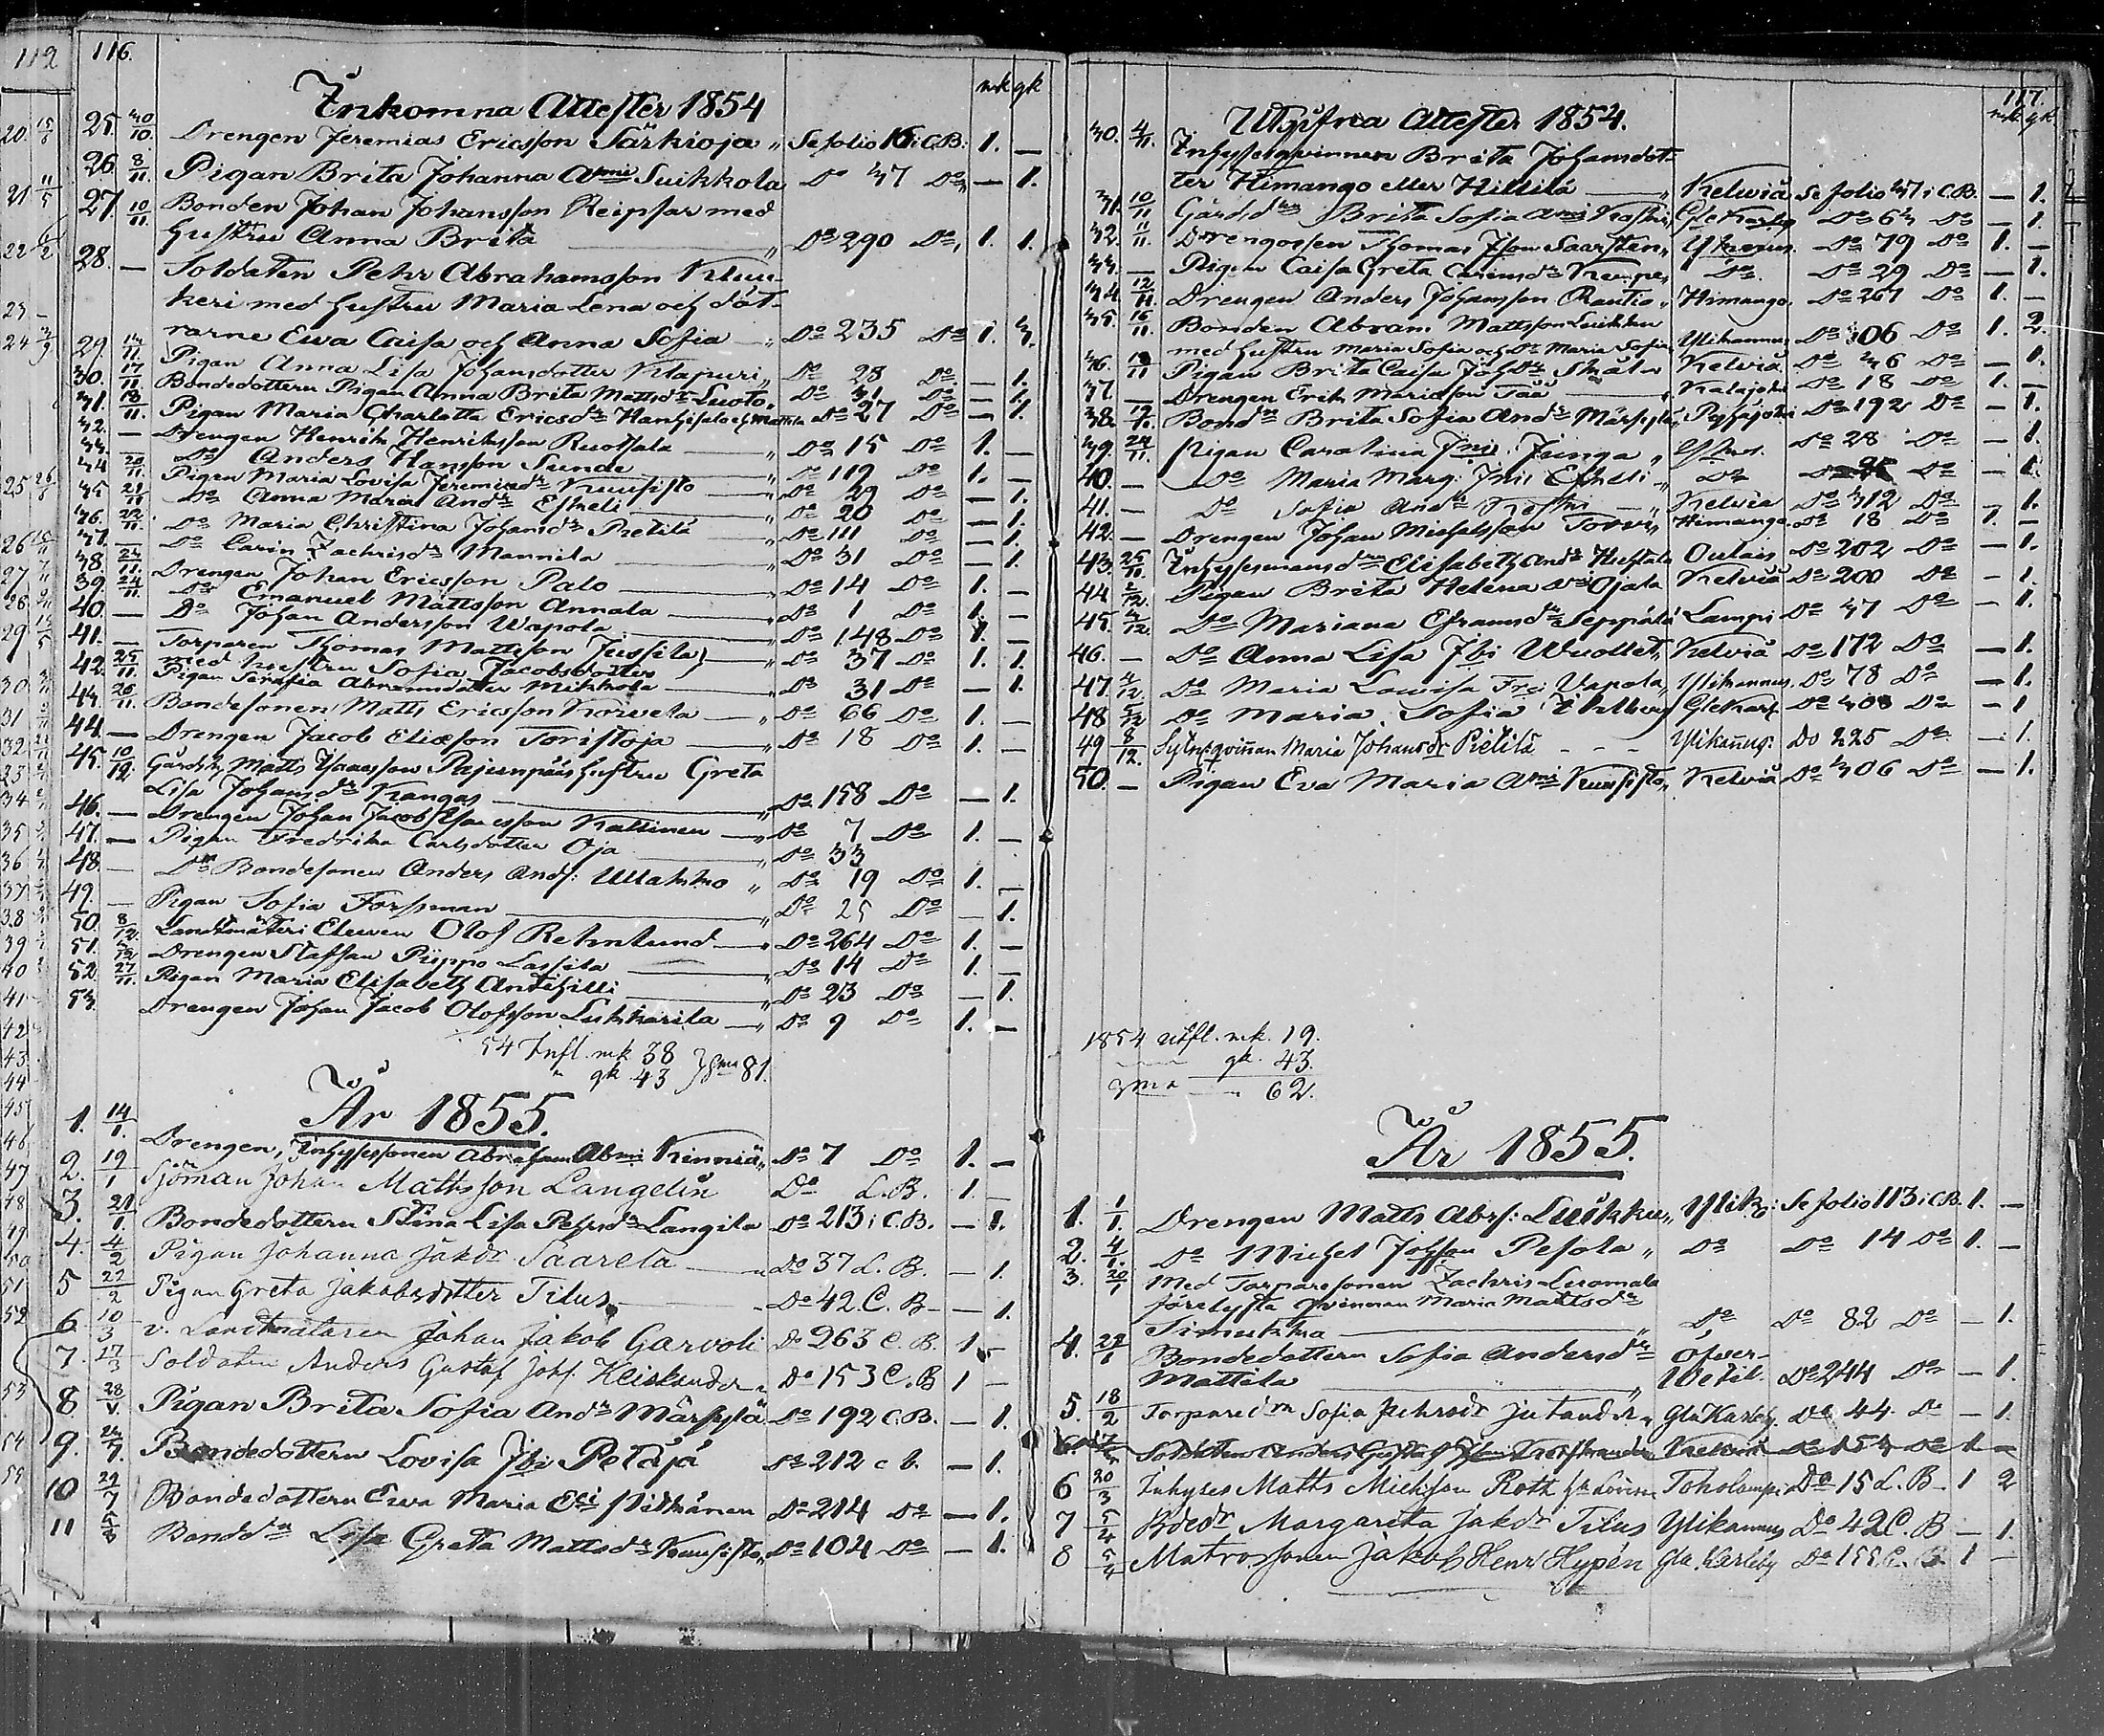 116.
Inkomna Attester 1854
mk gk
25. 30/10. Drengen Jeremias Ericsson Särkioja „ Se folio 16 i C.B. 1. —
26. 8/11. Pigan Brita Johanna Ami Suikkola Do 37 Do — 1.
27. 10/11. Bonden Johan Johansson Reipsar med
hustru Anna Brita „ Do 290 Do 1. 1.
28. — Soldaten Pehr Abrahamsson Kluu-
keri med hustru Maria Lena och döt-
rarne Ewa Caisa och Anna Sofia — „ Do 235 Do 1. 3.
29. 14/11. Pigan Anna Lisa Johansdotter Klapuri „ Do 28 Do — 1.
30. 17/11. Bondedottern Pigan Anna Brita Mattsdr Luoto „ Do 31 Do — 1.
31. 18/11. Pigan Maria Charlotta Ericsdr Mattila Do 27 Do — 1.
32. — Drengen Henrik Henriksson Ruotsala — „ Do 15 Do 1. —
33. — Do Anders Hansson Sunde — „ Do 119 Do 1. —
34 20/11. Pigan Maria Lovisa Jeremiædr Kuusisto — „ Do 29 Do — 1.
35 21/11 Do Anna Maria Andr Eskeli — „ Do 20 Do — 1.
36. 22/11. Do Maria Christina Johansdr Pietilä — „ Do 111 Do — 1.
37. — Do Carin Zachrisdr Mannila — „ Do 31 Do — 1.
38. 24/11. Drengen Johan Ericsson Palo — „ Do 14 Do 1. —
39. 24/11. Do Emanuel Mattsson Annala — „ Do 1 Do 1. —
40. — Do Johan Andersson Wapola — „ Do 148 Do 1. —
41. — Torparen Thomas Mattsson Jussila
med hustru Sofia Jacobsdotter — „ Do 37 Do 1. 1.
42. 25/11. Pigan Serafia Abramsdotter Mikkola — „ Do 31 Do — 1.
43. 26/11. Bondesonen Matts Ericsson Korvela — „ Do 66 Do 1. —
44. — Drengen Jacob Eliæson Toristoja — „ Do 18 Do 1. —
45. 10/12. Gårdsk. Matts Isacsson Pajunpääs hustru Greta
Lisa Johansdr Kangas — „ Do 158 Do — 1.
46. — Drengen Johan Jacob Isacsson Kattinen — „ Do 7 Do 1. —
47. — Pigan Fredrika Carlsdotter Oja — „ Do 33
48. — Dn Bondesonen Anders Ands: Ullakko „ Do 19 Do 1. —
49. — Pigan Sofia Forsman — „ Do 25 Do — 1.
50. 8/12. Landtmäteri Eleven Olof Rehnlund — „ Do 264 Do 1. —
51. Drengen Staffan Piippo Lassila — „ Do 14 Do 1. —
52. 27/11. Pigan Maria Elisabeth Anttihilli — „ Do 23 Do — 1.
53. Drengen Johan Jacob Olofsson Lukkarila — „ Do 9 Do 1. —
54 Infl. mk 38
" gk 43 } Sma 81.
År 1855.
1. 14/1. Drengen, Inhyssesonen Abraham Abmi Kinniä „ Do 7 Do 1. —
2. 19/1 Sjöman Johan Mattsson Langelin Do L.B. 1. —
3. 21/1. Bondedottern Stina Lisa Pehrsdr Langila Do 213 i C.B. — 1.
4. 4/2 Pigan Johanna Jakdr Saarela — „ Do 37 L.B. — 1.
5 22/2 Pigan Greta Jakobsdotter Tilus — Do 42 C.B — 1.
6. 10/3 v. Landtmätaren Johan Jakob Garvoli Do 263 C.B. 1 —
7. 17/3 Soldaten Anders Gustaf Johs. Do 153 C.B 1 —
8. 28/V. Pigan Brita Sofia Andr Märsylä Do 192 C.B. — 1.
9. 22/7. Bondedottern Lovisa Jbi Petäjä Do 212 C.B. — 1.
10 29/7 Bondedottern Ewa Maria Eci Pitkänen Do 214 Do — 1.
11 5/8 Bonddn Lisa Greta Mattsdr Kuusisto „ Do 104 Do — 1.
117.
mk gk
Utgifna Attester 1854.
30. 4/11. Inhysesqvinnan Brita Johansdot-
ter Himango eller Hillilä — „ Kelviå Se folio 37 i C.B. — 1.
31. 10/11 Gårdd Brita Sofia Ami Glekarby Do 63 Do — 1.
32. 11/11. Drengossen Thomas Json Saarsten „ Do 79 Do 1. —
33. — Pigan Caisa Greta Carinsdr Kempe „ Do. Do 29 Do — 1.
34. 12/11 Drengen Anders Johansson Rautio „ Himango. Do 267 Do 1. —
35. 16/11. Bonden Abram Mattsson Luikku
med hustru Maria Sofia och Dr Maria Sofia Ylikannus Do 106 Do 1. 2.
36. 18/11 Pigan Brita Caisa Johdr Skäl „ Kelviå Do 36 Do — 1.
37. — Drengen Erik Mariason Tää — Kalajoki Do 18 Do 1. —
38. Bondn Brita Sofia Andr Märsylä „ Pyhäjoki Do 192 Do — 1.
39. 24/11. Pigan Carolina Jmi. Junga „ Do 28 Do — 1.
40. — Do Maria Marg. Jmi Eskeli „ Do Do — 1.
41. — Do Sofia Andr — „ Kelvia Do 312 Do — 1.
42. — Drengen Johan Michelsson Torvi „ Himanga. Do 18 Do 1. —
43. 25/11. Inhysesmansdrn Elisabeth Andr Oulais Do 202 Do — 1.
44 2/12. Pigan Brita Helena Ojala Kelviå Do 200 Do — 1.
45. 3/12. Do Mariana Efraimsdr Seppälä Lampi Do 37 Do — 1.
46. — Do Anna Lisa Jbi Wuollet „ Kelviå Do 172 Do — 1.
47. 4/12. Do Maria Lowisa Frei Vapola „ Ylikannus. Do 78 Do — 1.
48 5/12 Do Maria Sofia Glekarl. Do 308 Do — 1
49 8/12. Sytn:qvinnan Maria Johansdr Pietilä - - - Ylikañus: Do 225 Do — 1.
50. — Pigan Eva Maria Ami Kuusisto „ Kelviå Do 306 Do — 1.
1854 utfl. mk. 19.
gk. 43.
Sma — 62.
År 1855.
1. 1/1. Drengen Matts Abrs: Luikku „ Ylik: Se folio 113 i C.B. 1. —
2. 4/1. Do Michel Johsson Pesola „ Do Do 14 Do 1. —
3. 20/1 Med Torparesonen Zachris Luomala
förelysta qvinnan Maria Mattsdr
Simukka — „ Do Do 82 Do — 1.
4. 22/1 Bondedottern Sofia Andersdr Öfver-
Mattila — „ Wetil. Do 244 Do — 1.
5. 18/2 Torparedrn Sofia Pehrsdr Jutander „ Gla Karleby. Do 44 Do — 1.
6. 17/3 Soldaten Anders Gustaf Kelviå Do 153 Do 1 —
6 20/3 Inhyses Matts Michsson Roth Toholampi Do 15 L.B. 1 2
7 5/4 Bdedr Margareta Jakdr Tilus Ylikannus Do 42 C.B — 1.
8 5/4 Matrossonen Jakob Henr Hypén Gla. Karleby Do 155 C.B. 1 —